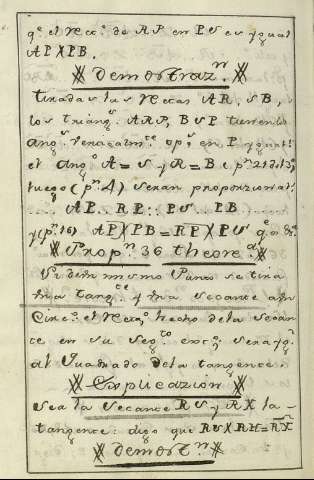 q.e el rec.o de RP en PS es ygual
AP X PB.
Demostraz.n
tiradas las rectas AR, SB,
los triang.s ARP, BSP tienen los
ang.s verticalm.te op.s en P yguat.s
el ang.o A = S y R = B (p.n 21 del 3.o
luego (p.n 4) seran proporzional.s
AP.. RP:: PS.. PB
y (p.n 16) AP X PB = RP X PS q.e o. d.r
Prop.n 36 theore.a
Si de un mismo Punto se tira
una tang.te y una secante a un
Circ.o el rect.o hecho de la secan
te en su seg.to ext.o, sera yg.l
al Quadrado de la tangente.
Esplicazion
Sea la Secante RS y RX la
tangente: digo que RS X RH = RX
Demost.n